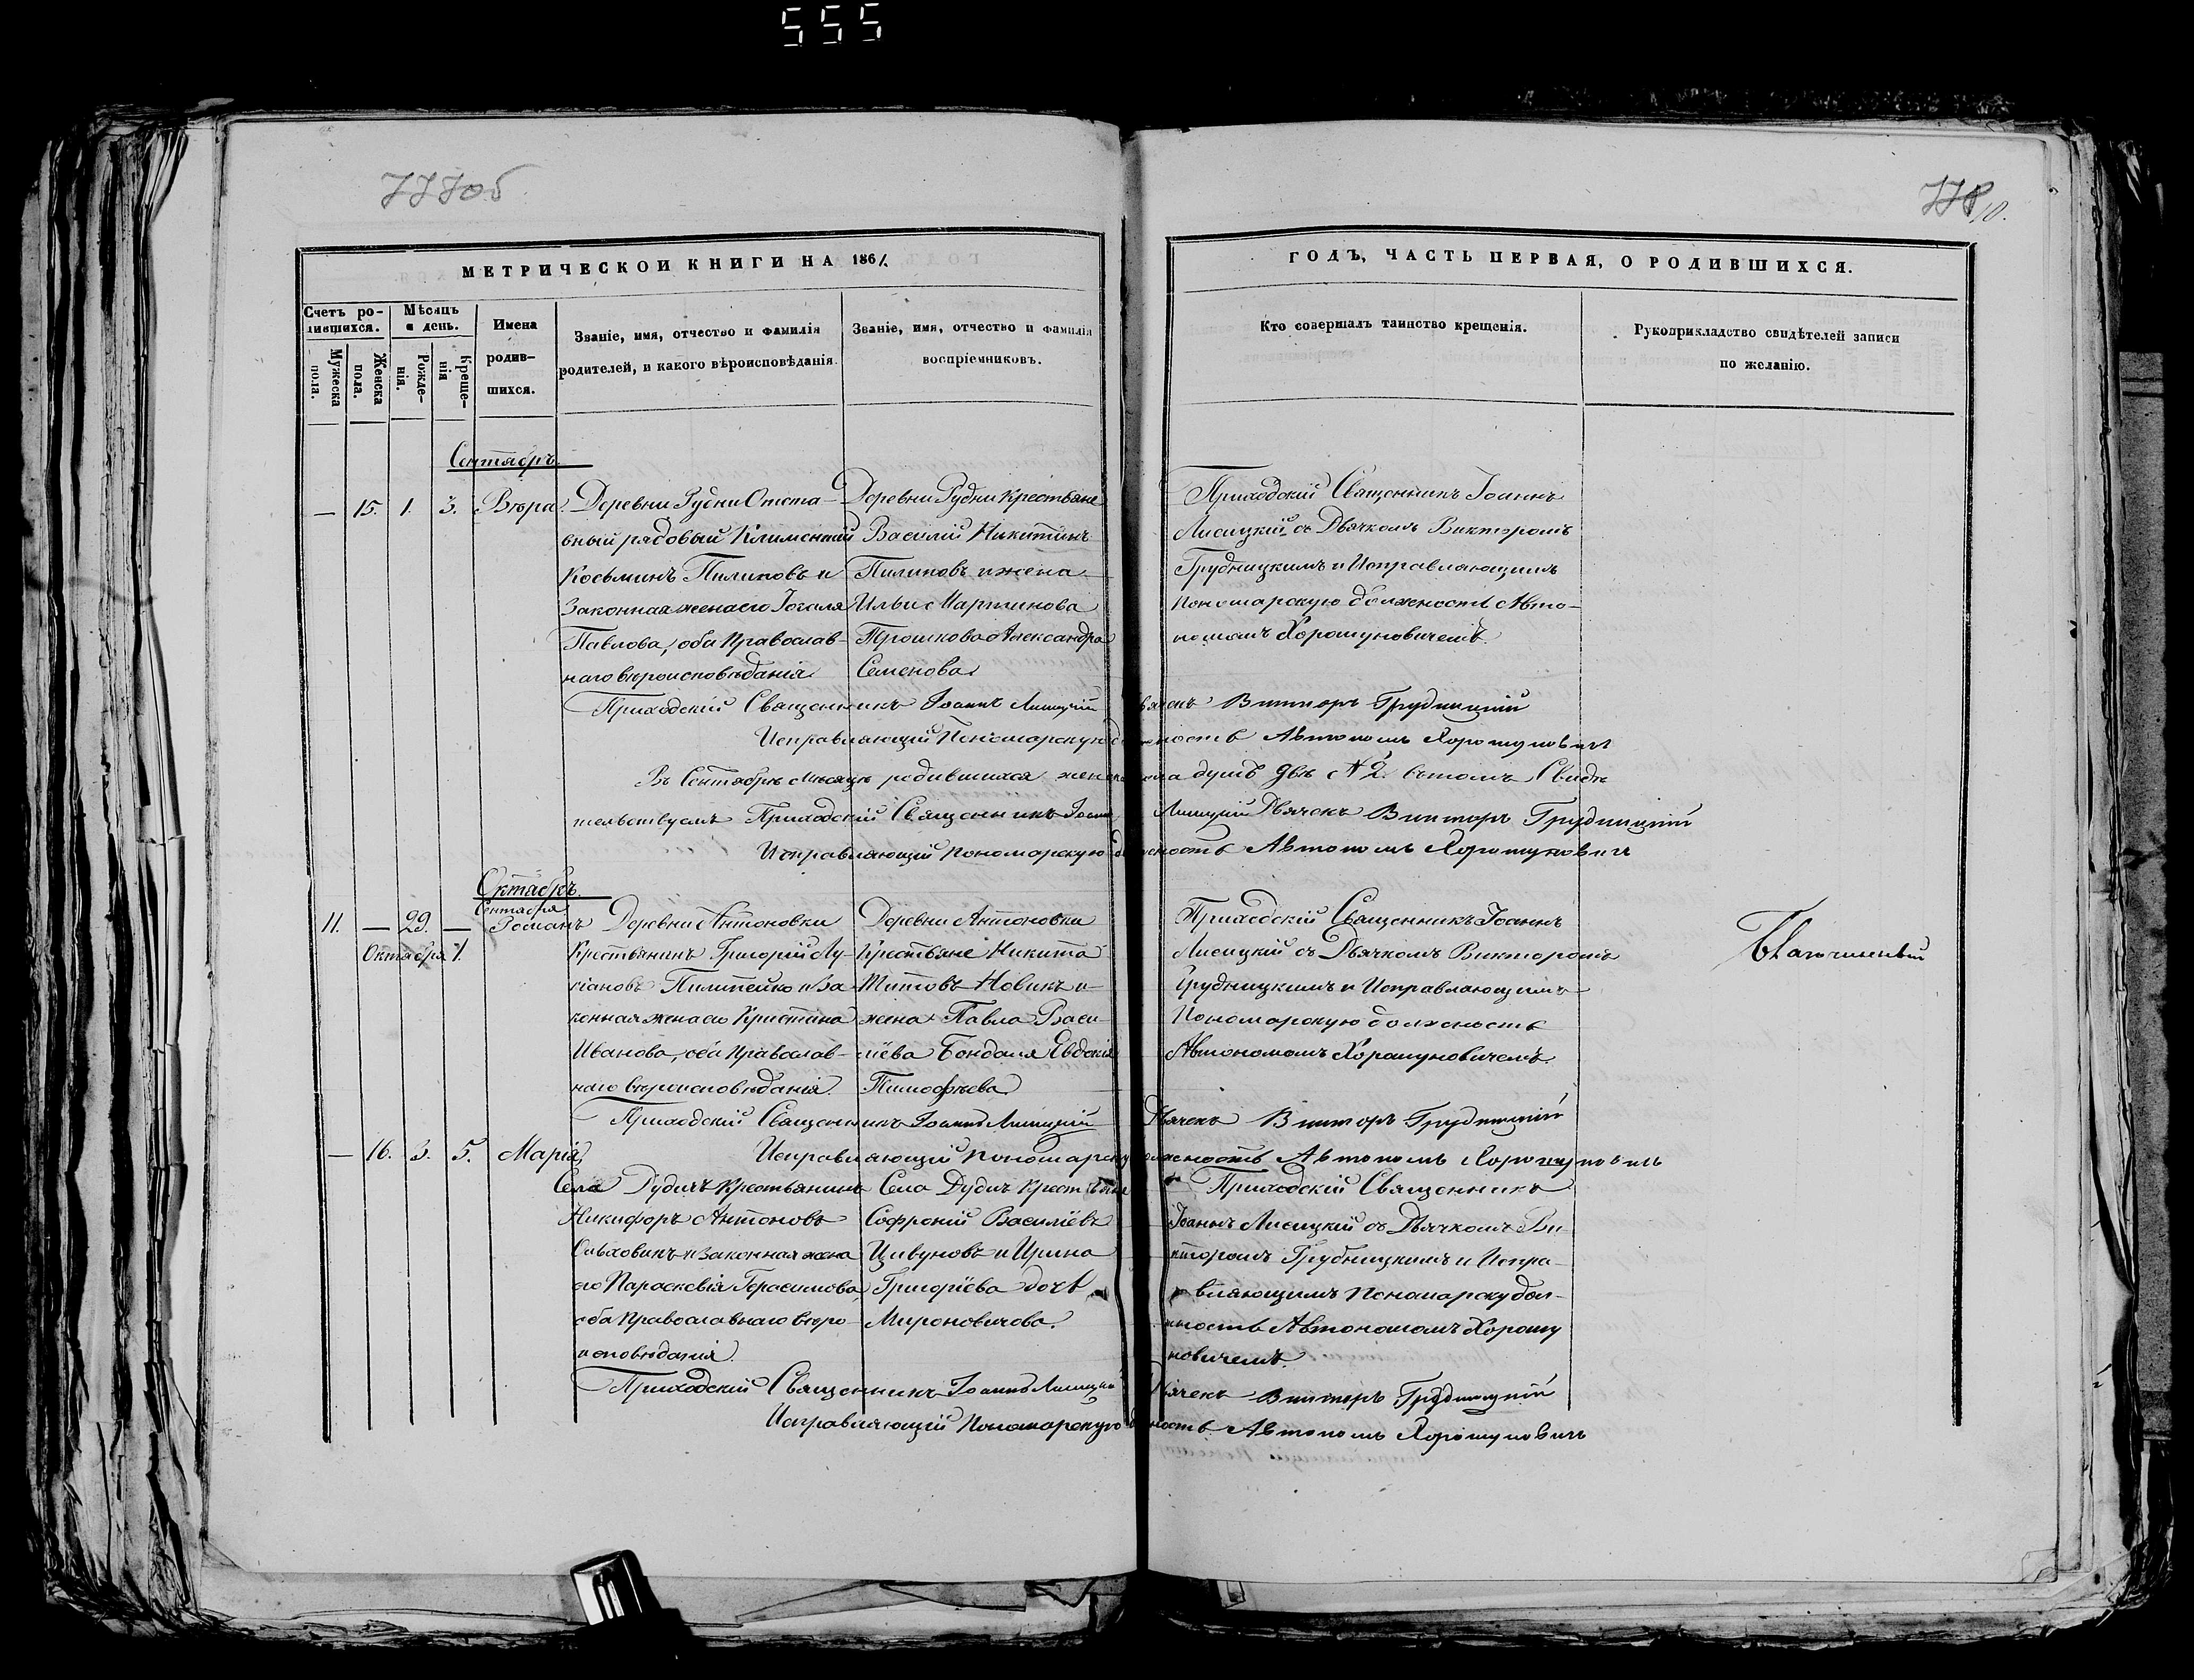 555
777об
778
10.
МЕТРИЧЕСКОЙ КНИГИ НА 1861.
ГОДЪ, ЧАСТЬ ПЕРВАЯ, О РОДИВШИХСЯ.
Счетъ родившихся.
Мужеска пола.
Женска пола.
Мѣсяцъ и день.
Рожденія.
Крещенія
Имена родившихся.
Званіе, имя, отчество и фамилія
родителей, и какого вѣроисповѣданія.
Званіе, имя, отчество и фамилія
воспріемниковъ.
Кто совершалъ таинство крещенія.
Рукоприкладство свидѣтелей записи
по желанію.
Сентябрь.
— 15. 1. 3. Вѣра.
Деревни Рудни Отста-
вный рядовый Климентий
Косьминъ Пилиповъ и
Законная жена его
Павлова, оба Православ-
наго вѣроисповѣданія.
Деревни Рудни Крестьяне
Василій Никитинъ
Пилиповъ и жена
Ильи Мартинова
Прошкова Александра
Семенова.
Приходскій Священникъ Іоаннъ
Лисицкій съ Дьячкомъ Викторомъ
Грудницкимъ и Исправляющимъ
Пономарскую должность Авто-
номомъ Хорошуновичемъ.
Приходскій Священникъ Іоаннъ Лисицкій Дьячекъ Викторъ Грудницкій
Исправляющій Пономарскую должность Автономъ Хорошуновичъ
Въ Сентябрѣ Мѣсяцѣ родившихся женска пола душъ двѣ № 2. въ томъ Свидѣ
тельствуемъ Приходскій Священникъ Іоаннъ Лисицкій Дьячекъ Викторъ Грудницкій
Исправляющій Пономарскую должность Автономъ Хорошуновичъ
Октябрь.
Сентября
11. — 29. — Романъ
Октября 1.
Деревни Антоновки
Крестьянинъ Григорій Лу-
кіановъ Пилипейко и За
конная жена его Кристина
Иванова, оба Православ-
наго вѣроисповѣданія.
Деревни Антоновки
Крестьяне Никита
Титовъ Новикъ и
жена Павла Васи-
ліева Бондаля Евдокія
Тимофѣева
Приходскій Священникъ Іоаннъ
Лисицкій съ Дьячкомъ Викторомъ
Грудницкимъ и Исправляющимъ
Пономарскую должность
Автономомъ Хорошуновичемъ.
Благочинный
Приходскій Священникъ Іоаннъ Лисицкій Дьячекъ Викторъ Грудницкій
Исправляющій Пономарскую должность Автономъ Хорошуновичъ
— 16. 3. 5. Марія
Села Дудичъ Крестьянинъ
Никифоръ Антоновъ
Ольховикъ и Законная жена
его Параскевія Герасимова,
оба Православнаго вѣро
исповѣданія.
Села Дудичъ Крестьяне
Софроній Василіевъ
Цивуновъ и Ирина
Григоріева дочь
Мироновичова.
Приходскій Священникъ
Іоаннъ Лисицкій съ Дьячкомъ Ви
кторомъ Грудницкимъ и Испра-
вляющимъ Пономарску дол-
жность Автономомъ Хорошу
новичемъ.
Приходскій Священникъ Іоаннъ Лисицкій Дьячекъ Викторъ Грудницкій
Исправляющій Пономарскую должность Автономъ Хорошуновичъ